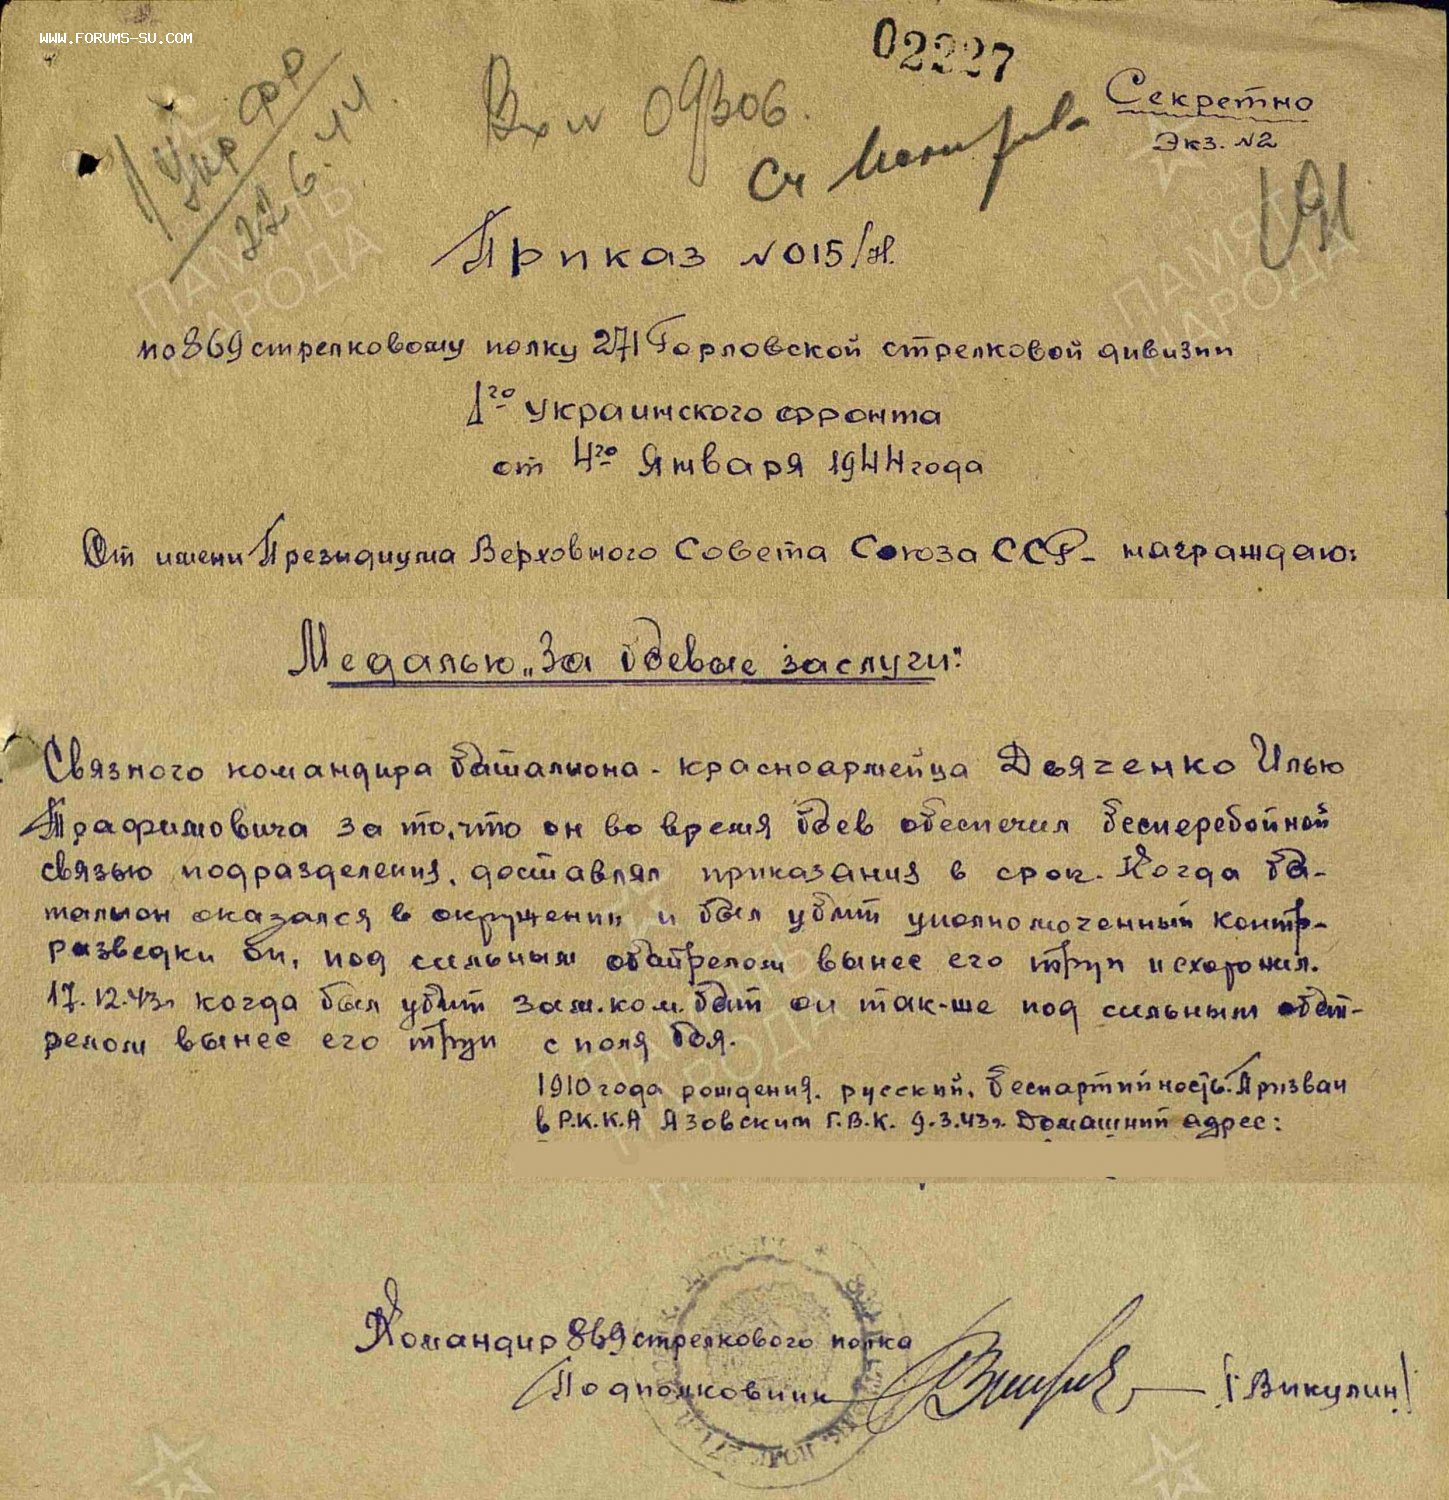 WWW.FORUMS-SU.COM
02227
Секретно
Экз. №2
Вх № 09306.
Упр ФР
22 6. 44
Приказ №015/Н.
по 869 стрелковому полку 271 Горловской стрелковой дивизии
1го Украинского фронта
от 4го Января 1944 года
От имени Президиума Верховного Совета Союза ССР - награждаю:
Медалью „За боевые заслуги":
Связного командира баталиона - красноармейца Дьяченко Илью
Трафимовича за то, что он во время боев обеспечил бесперебойной
связью подразделения, доставлял приказания в срок. Когда ба-
талион оказался в окружении и был убит уполномоченный контр-
разведки он, под сильным обстрелом вынес его труп и схоронил.
17.12.43г когда был убит зам.ком.бат он так-же под сильным обст-
релом вынес его труп с поля боя.
1910 года рождения. русский, беспартийность. Призван
в Р.К.К.А Язовским Г.В.К. 9.3.43г. Домашний адрес:
Командир 869 стрелкового полка
Подполковник
/Викулин/
ПАМЯТЬ
НАРОДА
ПАМЯТЬ
НАРОДА